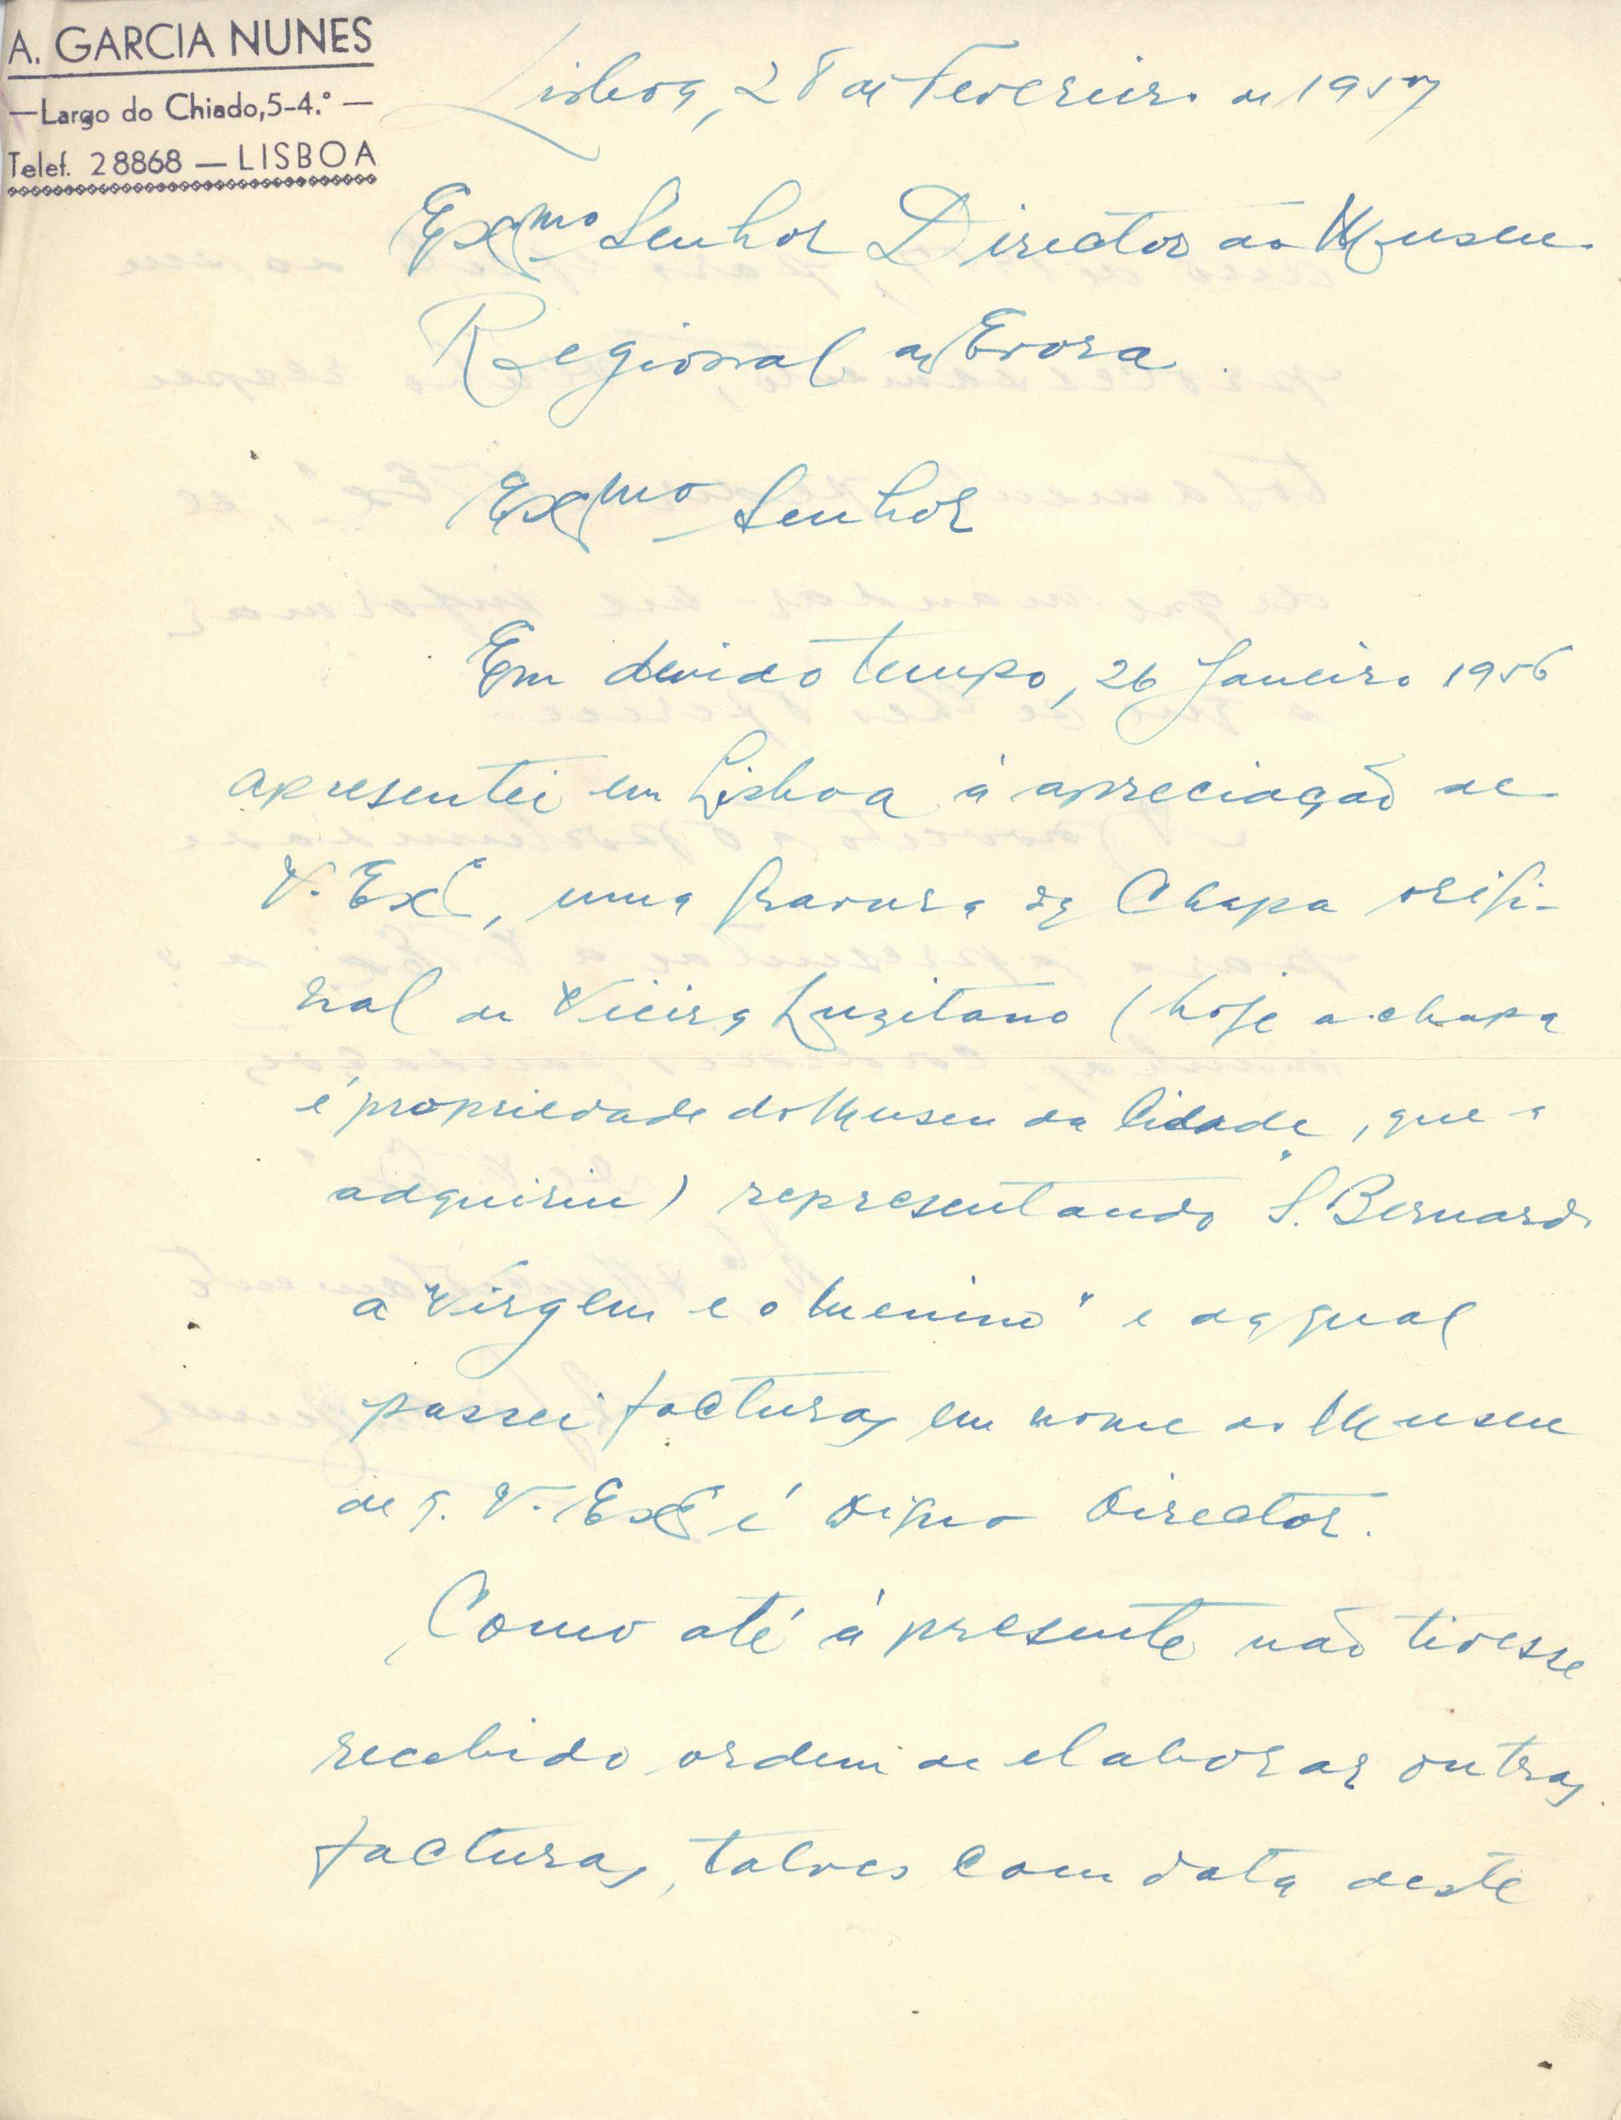 A. GARCIA NUNES
—Largo do Chiado, 5-4.º—
Telef. 28868 — LISBOA
Lisboa, 28 de Fevereiro de 1957
Exmo Senhor Director do Museu
Regional de Evora.
Exmo Senhor
Em devido tempo, 26 Janeiro 1956
apresentei em Lisboa á apreciação de
V. Exª, uma gravura da Chapa origi-
nal de Vieira Luzitano (hoje a chapa
é propriedade do Museu da Cidade, que a
adquiriu) representando "S. Bernardo
a Virgem e o Menino" e da qual
passei facturas em nome do Museu
de q. V. Exª é digno Director.
Como até á presente não tivesse
recebido ordem de elaborar outras
facturas, talves com data deste